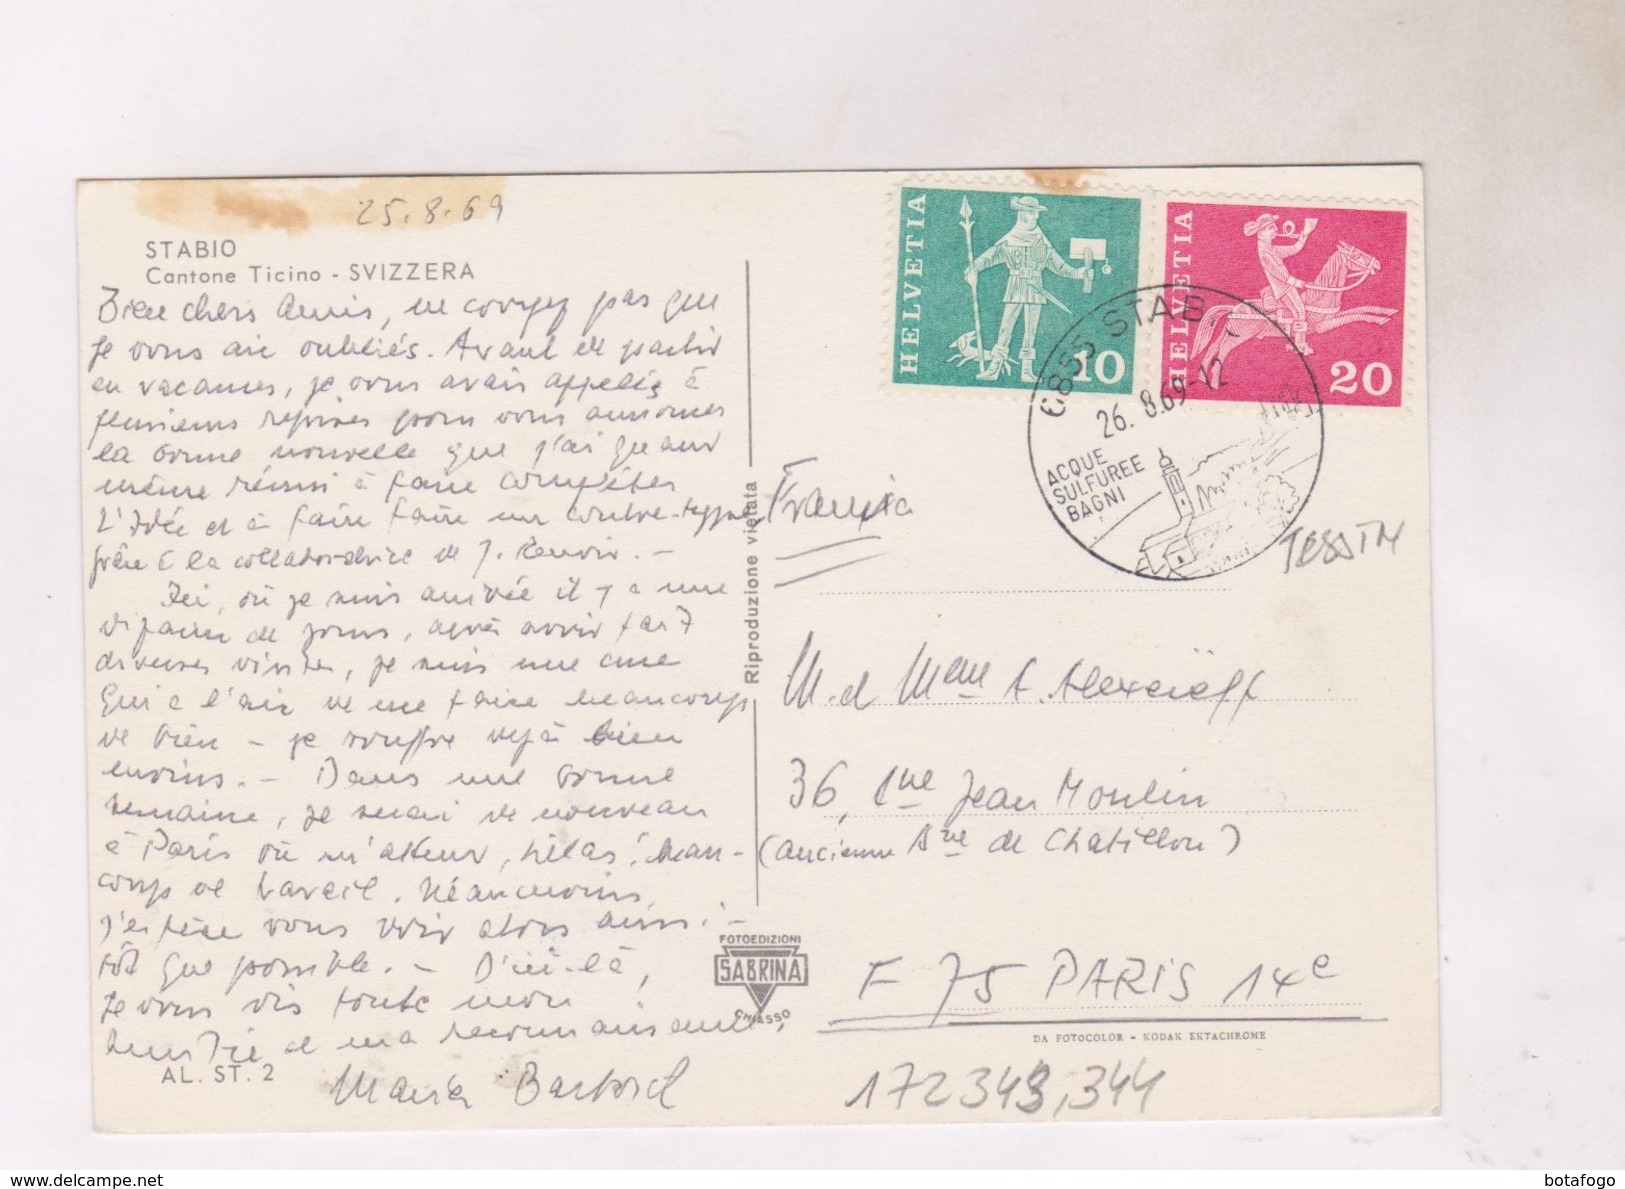 25.8.69
STABIO
Cantone Ticino - SVIZZERA
Bien chers Amis, ne croyez pas que
je vous aie oubliés. Avant de partir
en vacances, je vous avais appelés à
plusieurs reprises pour vous annoncer
la bonne nouvelle que j'ai quand
même réussi à faire compléter
L'Idée et à faire faire un contre-type
grâce à la collaboratrice de J. Renoir. -
Ici, où je suis arrivée il y a une
de jours, après avoir fait
diverses visites, je suis une cure
qui a l'air de me faire beaucoup
de bien - je souffre déjà bien
moins. - Dans une bonne
semaine, je serai de nouveau
à Paris où m'attend, hélas! beau-
coup de travail. Néanmoins,
j'espère vous voir alors aussi-
tôt que possible. - D'ici-là,
je vous dis toute mon
amitié et ma reconnaissance,
Maria
AL. ST. 2
Riproduzione vietata
FOTOEDIZIONI
SABRINA
CHIASSO
HELVETIA
10
HELVETIA
20
6855 STAB
26. 8.69-12
ACQUE
SULFUREE
BAGNI
TESSIN
Francia
M. et Mme A. Alexeïeff
36, Ave Jean Moulin
(ancienne Ave de Chatillon)
F 75 PARIS 14e
DA FOTOCOLOR - KODAK EKTACHROME
172343,344
botafogo